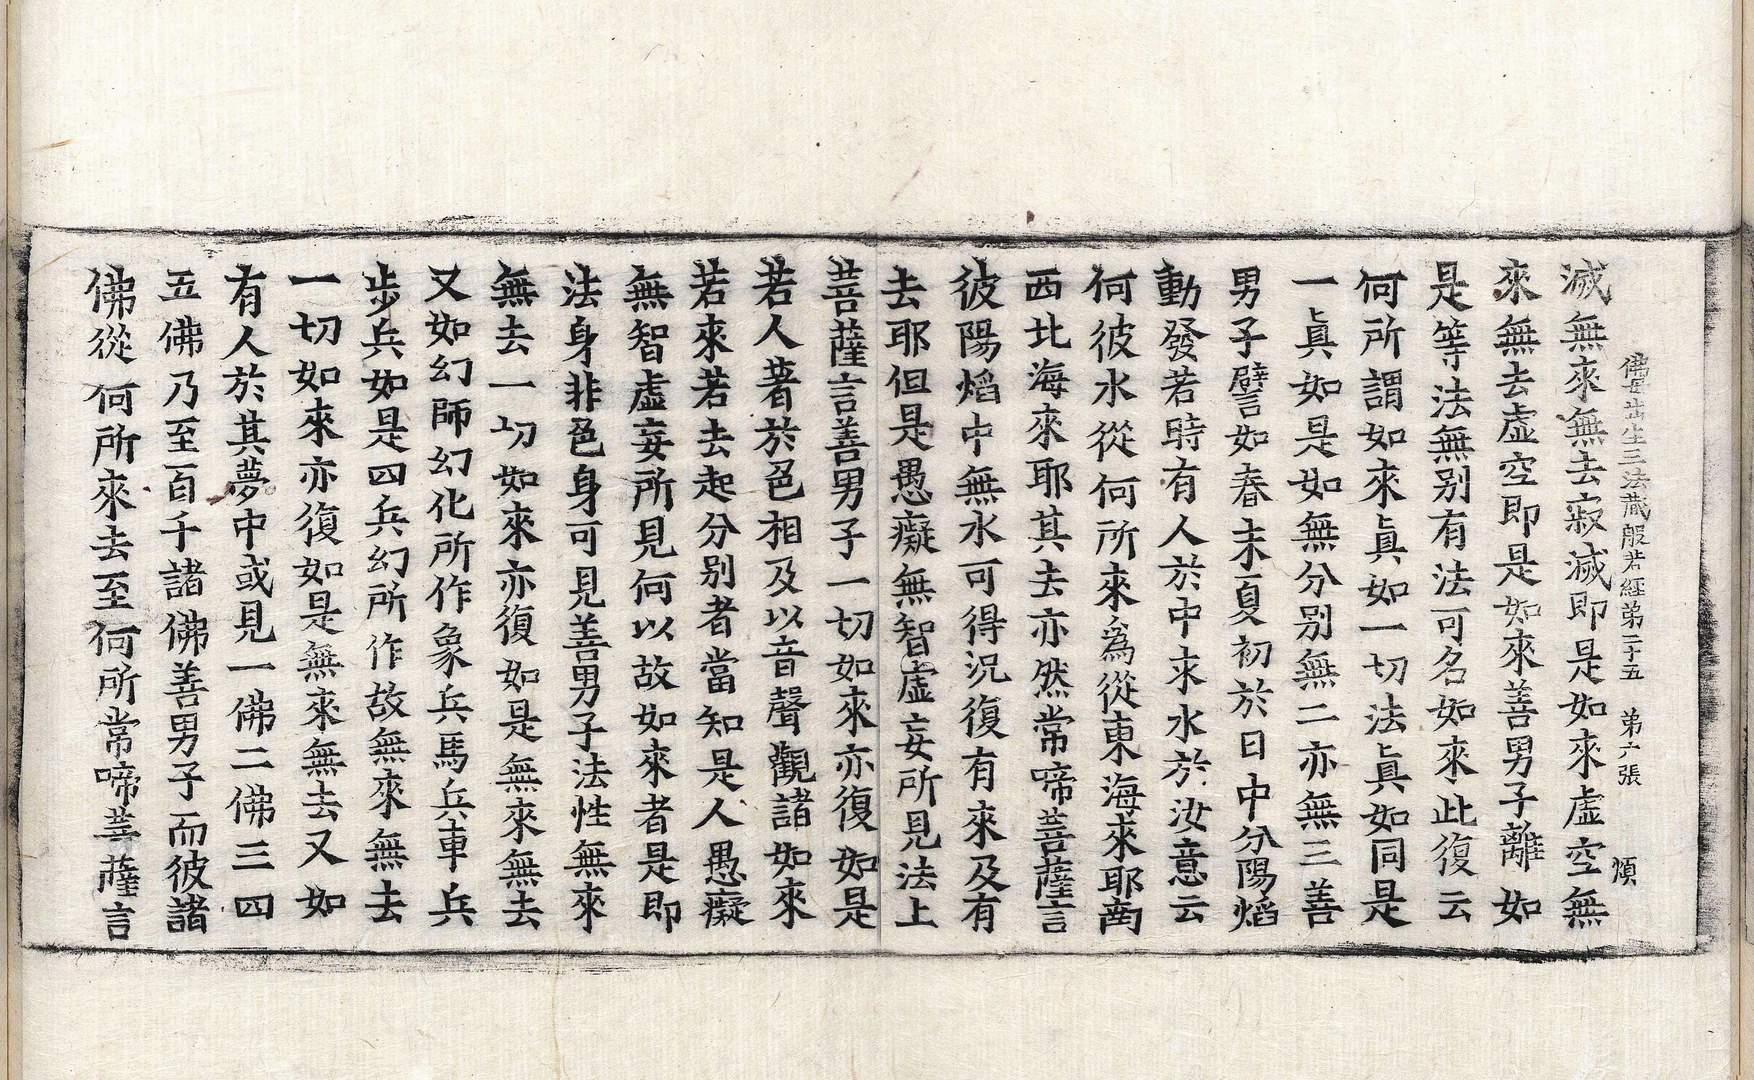 佛母出生三法藏般若經第二十五 第六張 煩
滅無來無去寂滅即是如來虛空無
來無去虛空即是如來善男子離如
是等法無別有法可名如來此復云
何所謂如來眞如一切法眞如同是
一眞如是如無分別無二亦無三善
男子譬如春末夏初於日中分陽焰
動發若時有人於中求水於汝意云
何彼水從何所來爲從東海來耶南
西北海來耶其去亦然常啼菩薩言
彼陽焰中無水可得況復有來及有
去耶但是愚癡無智虛妄所見法上
菩薩言善男子一切如來亦復如是
若人著於色相及以音聲觀諸如來
若來若去起分別者當知是人愚癡
無智虛妄所見何以故如來者是即
法身非色身可見善男子法性無來
無去一切如來亦復如是無來無去
又如幻師幻化所作象兵馬兵車兵
步兵如是四兵幻所作故無來無去
一切如來亦復如是無來無去又如
有人於其夢中或見一佛二佛三四
五佛乃至百千諸佛善男子而彼諸
佛從何所來去至何所常啼菩薩言